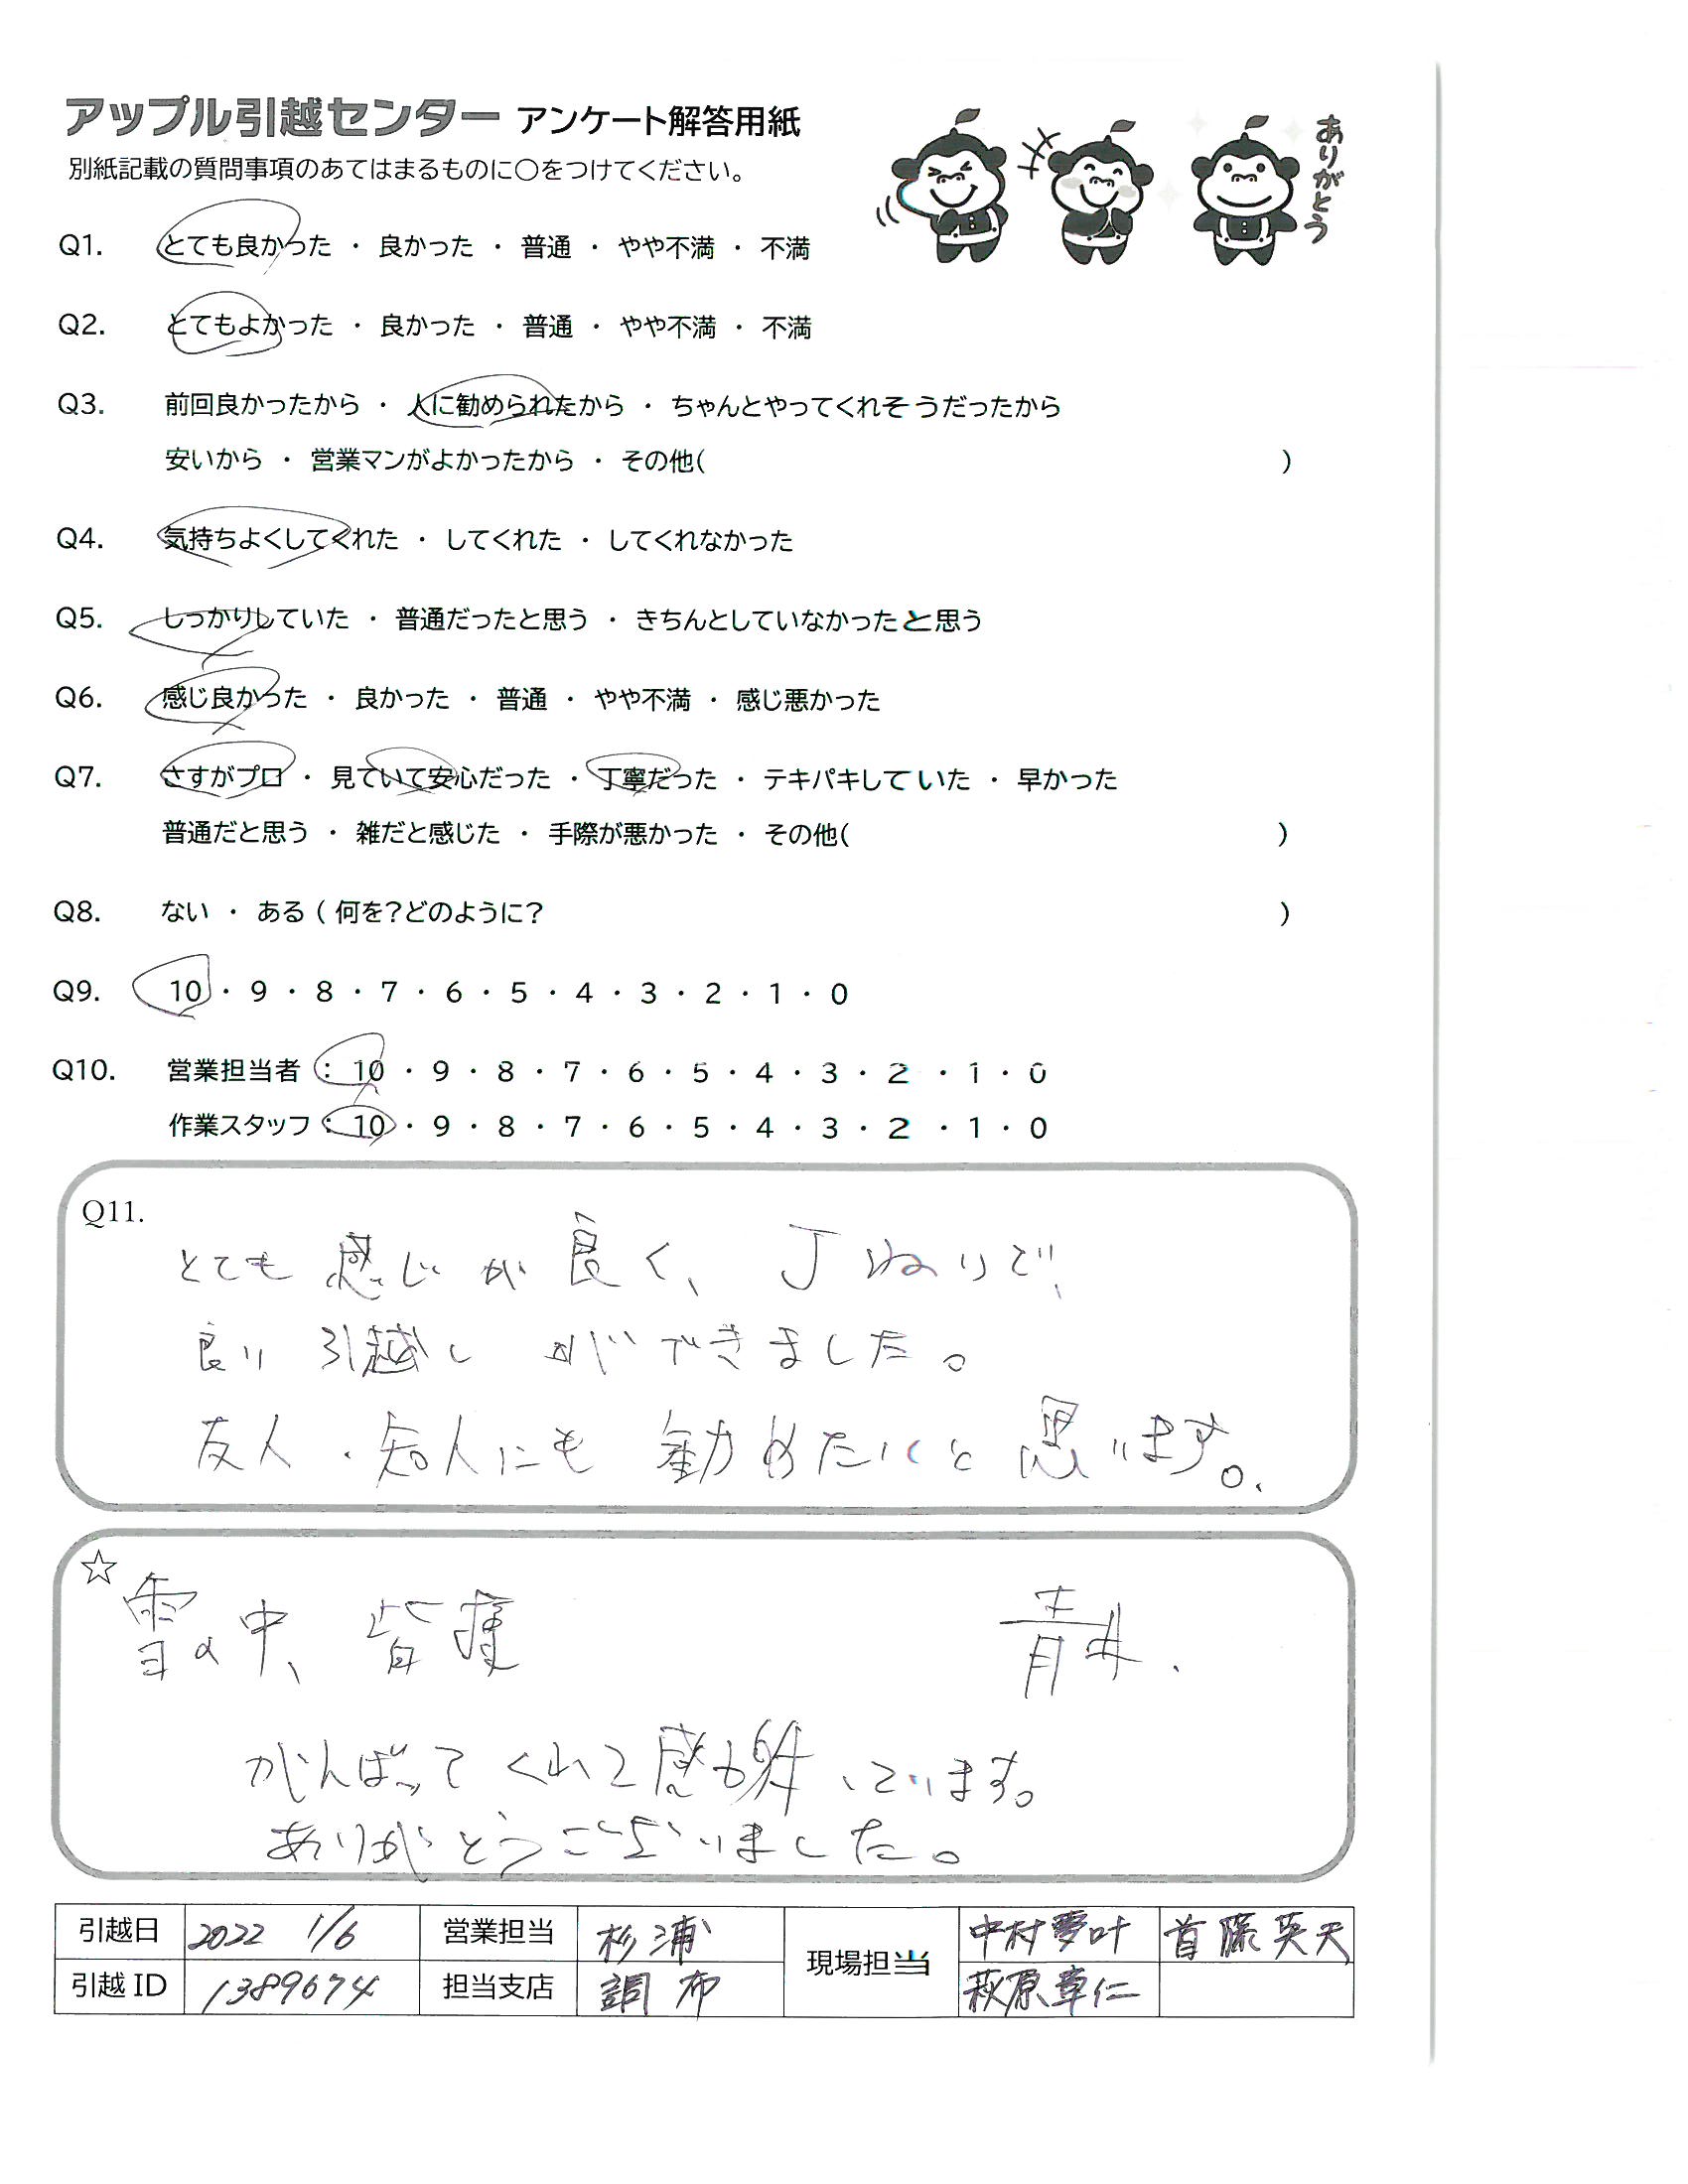 アップル引越センター アンケート解答用紙
別紙記載の質問事項のあてはまるものに〇をつけてください。
ありがとう
Q1. とても良かった ・ 良かった ・ 普通 ・ やや不満 ・ 不満
Q2. とてもよかった ・ 良かった ・ 普通 ・ やや不満 ・ 不満
Q3. 前回良かったから ・ 人に勧められたから ・ ちゃんとやってくれそうだったから
安いから ・ 営業マンがよかったから ・ その他( )
Q4. 気持ちよくしてくれた ・ してくれた ・ してくれなかった
Q5. しっかりしていた ・ 普通だったと思う ・ きちんとしていなかったと思う
Q6. 感じ良かった ・ 良かった ・ 普通 ・ やや不満 ・ 感じ悪かった
Q7. さすがプロ ・ 見ていて安心だった ・ 丁寧だった ・ テキパキしていた ・ 早かった
普通だと思う ・ 雑だと感じた ・ 手際が悪かった ・ その他( )
Q8. ない ・ ある ( 何を?どのように? )
Q9. 10 ・ 9 ・ 8 ・ 7 ・ 6 ・ 5 ・ 4 ・ 3 ・ 2 ・ 1 ・ 0
Q10. 営業担当者 : 10 ・ 9 ・ 8 ・ 7 ・ 6 ・ 5 ・ 4 ・ 3 ・ 2 ・ 1 ・ 0
作業スタッフ : 10 ・ 9 ・ 8 ・ 7 ・ 6 ・ 5 ・ 4 ・ 3 ・ 2 ・ 1 ・ 0
Q11.
とても感じが良く、丁ねいで、
良い引越しができました。
友人・知人にも勧めたいと思います。
☆
雪の中、皆様 青木.
がんばってくれて感謝しています。
ありがとうございました。
引越日 2022 1/6 営業担当 杉浦 現場担当 中村夢叶 首藤英天
引越ID 1389674 担当支店 調布 萩原章仁